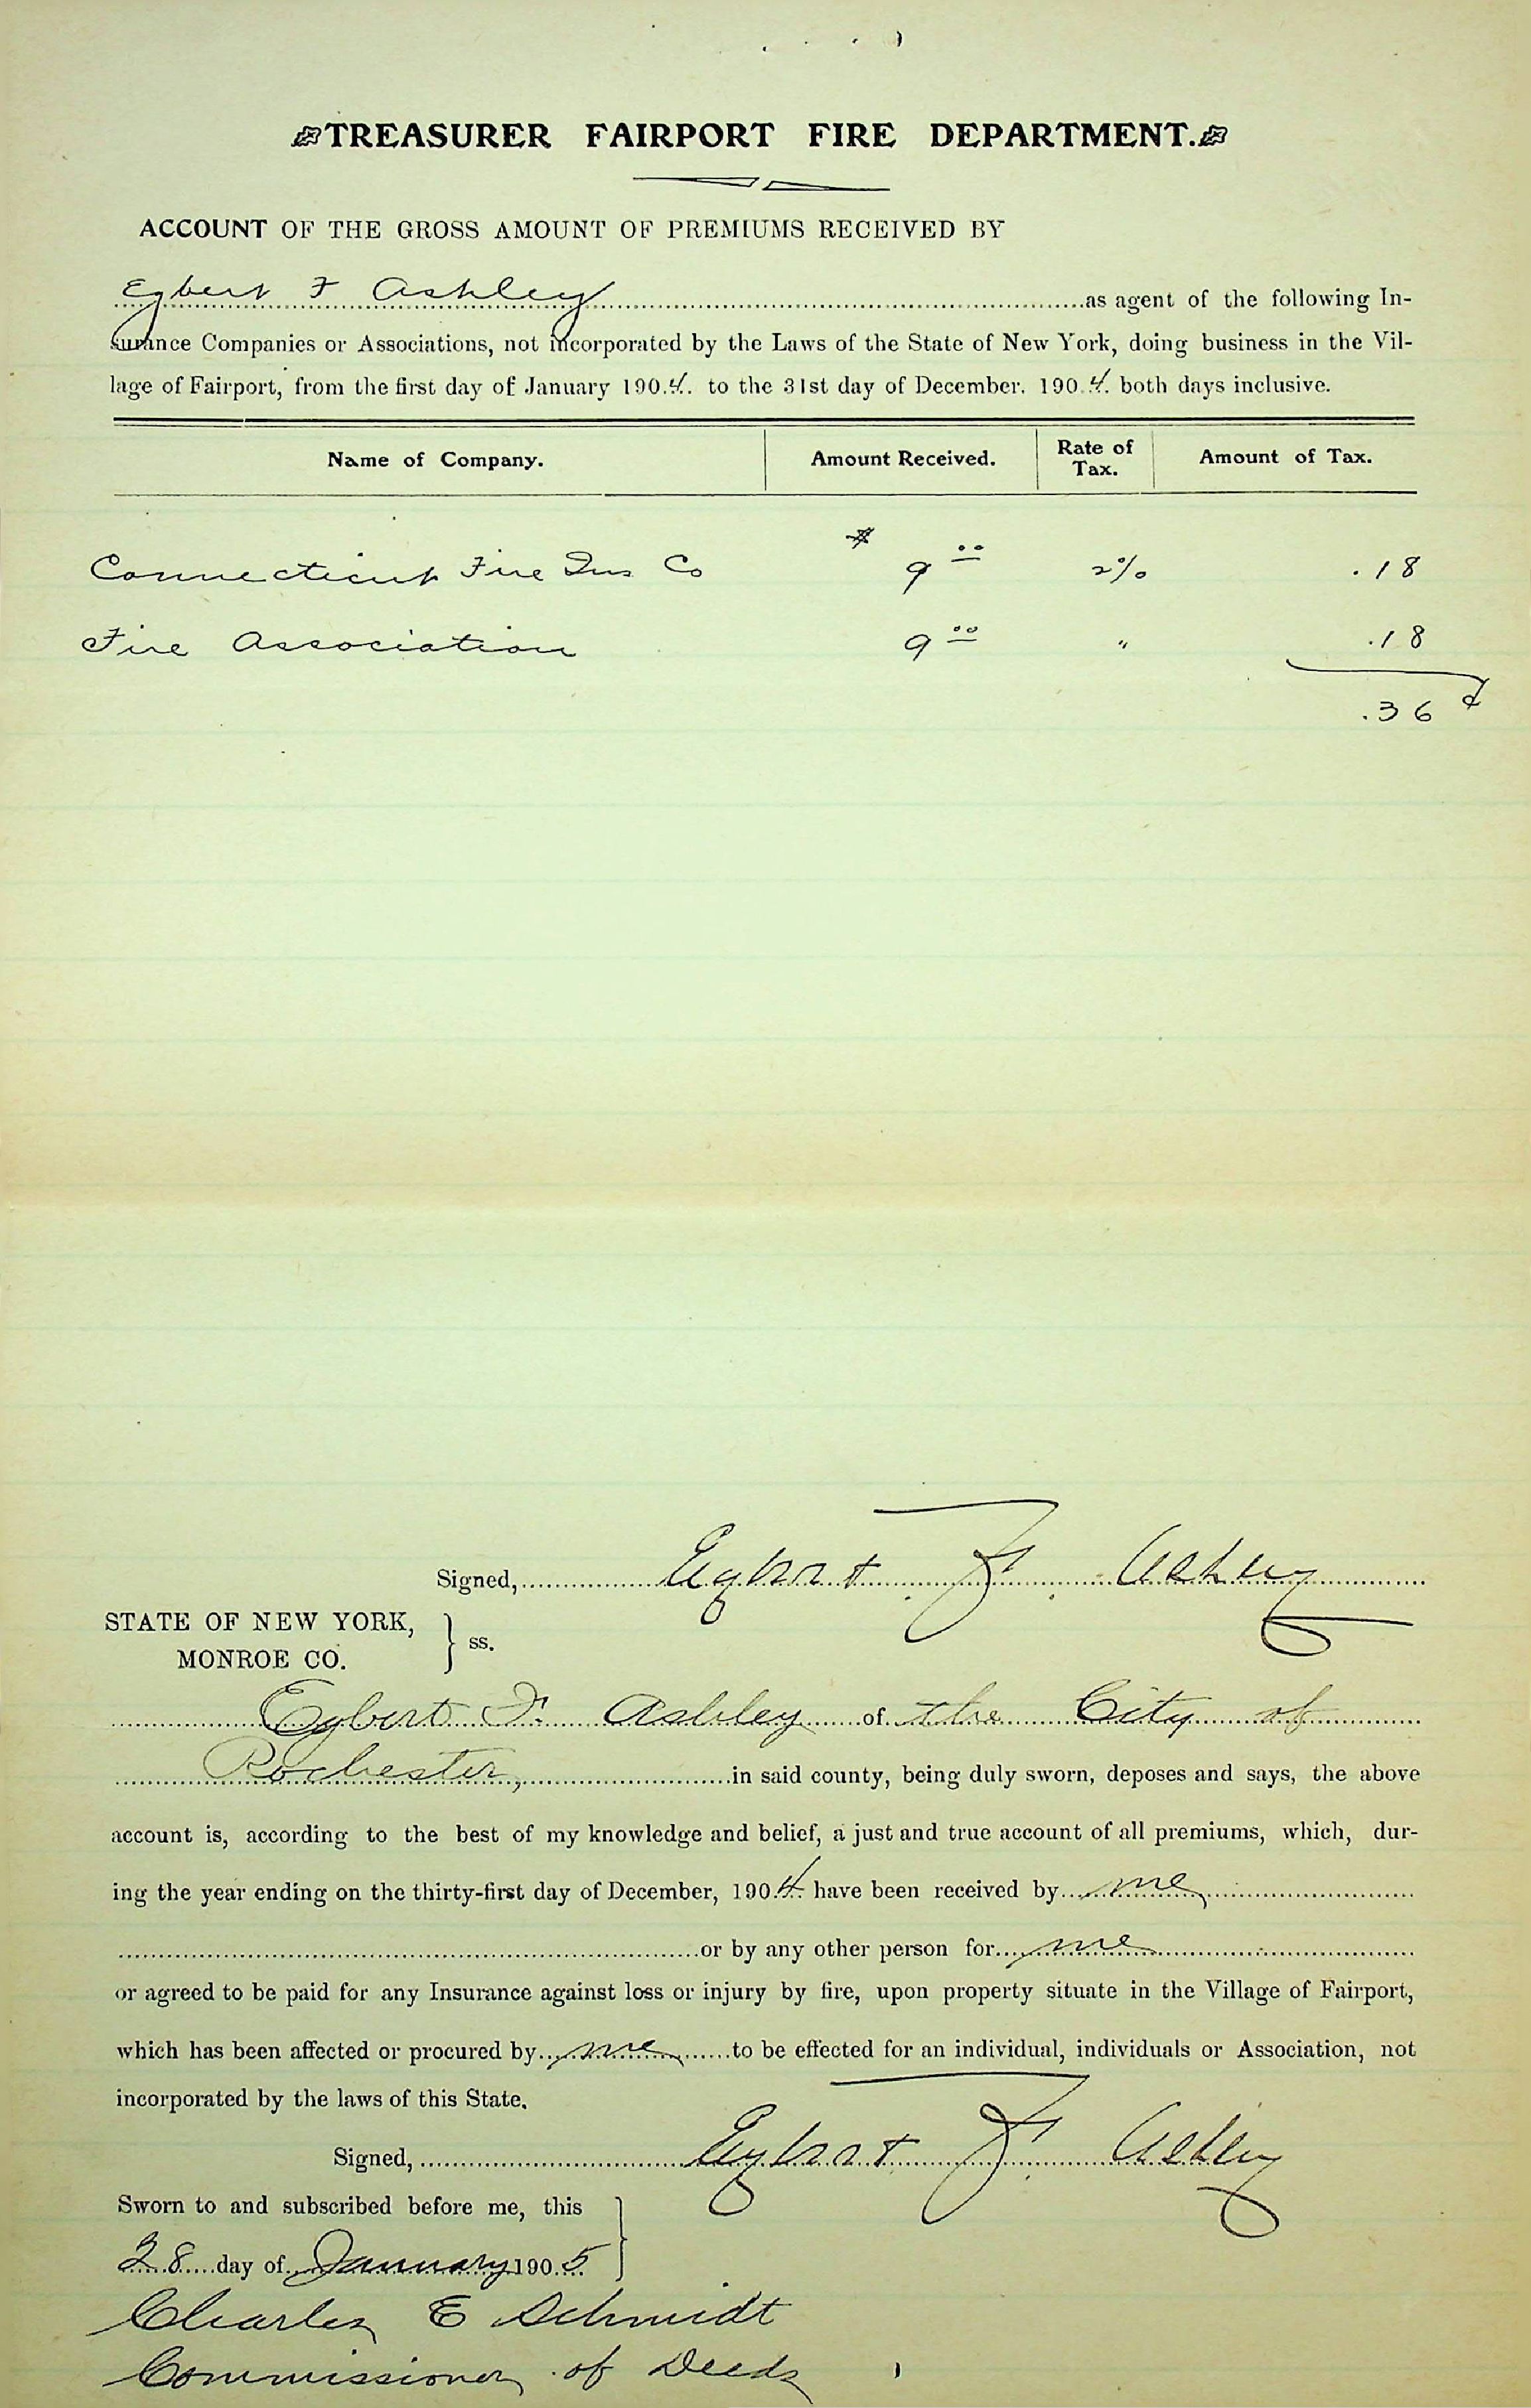 TREASURER FAIRPORT FIRE DEPARTMENT.
ACCOUNT OF THE GROSS AMOUNT OF PREMIUMS RECEIVED BY
Egbert F Ashley as agent of the following In-
surance Companies or Associations, not incorporated by the Laws of the State of New York, doing business in the Vil-
lage of Fairport, from the first day of January 1904. to the 31st day of December. 190.4. both days inclusive.
Name of Company. Amount Received. Rate of Tax. Amount of Tax.
Connecticut Fire Ins Co $ 9 00 2% .18
Fire Association 9 00 " .18
.36 ¢
Signed, Egbert F. Ashley
STATE OF NEW YORK,
MONROE CO. } ss.
Egbert F. Ashley of the City of
Rochester, in said county, being duly sworn, deposes and says, the above
account is, according to the best of my knowledge and belief, a just and true account of all premiums, which, dur-
ing the year ending on the thirty-first day of December, 1904. have been received by me
or by any other person for me
or agreed to be paid for any Insurance against loss or injury by fire, upon property situate in the Village of Fairport,
which has been affected or procured by me to be effected for an individual, individuals or Association, not
incorporated by the laws of this State.
Signed, Egbert F. Ashley
Sworn to and subscribed before me, this
28 day of January 1905
Charles E Schmidt
Commissioner of Deeds